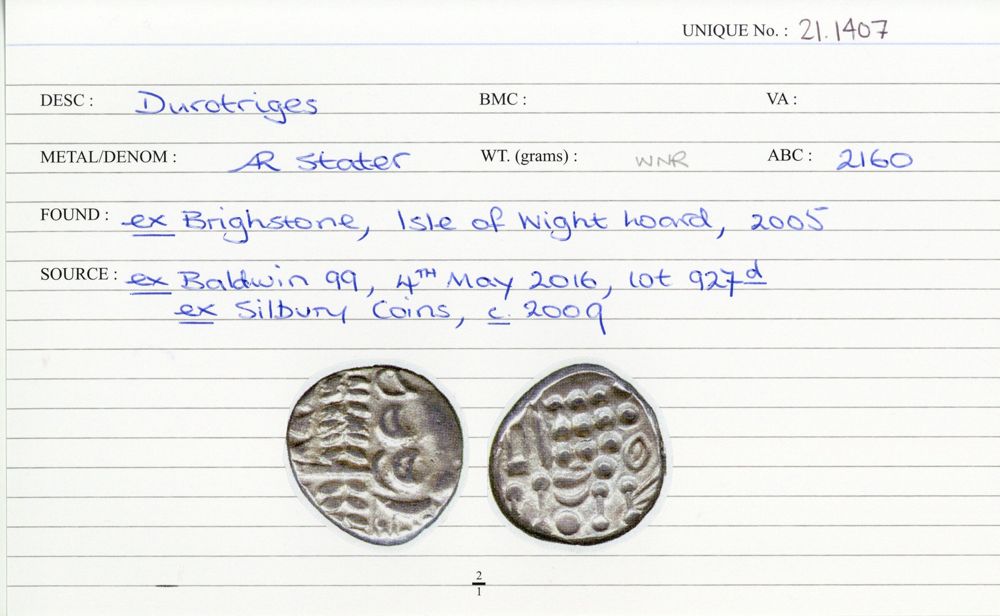 UNIQUE No. : 21.1407
DESC : Durotriges BMC : VA :
METAL/DENOM : AR Stater WT. (grams) : WNR ABC : 2160
FOUND : ex Brighstone, Isle of Wight hoard, 2005
SOURCE : ex Baldwin 99, 4TH May 2016, lot 927d
ex Silbury Coins, c. 2009
2
1